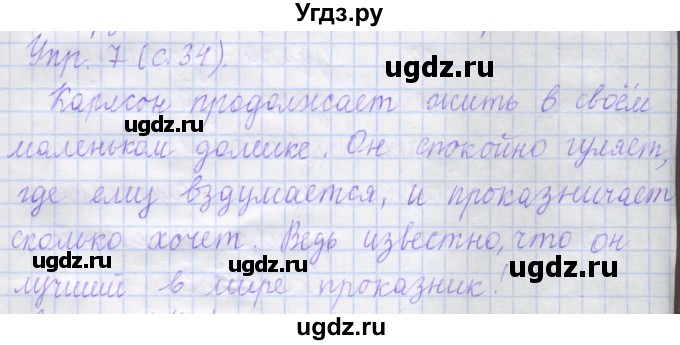 Угдз.ру
Упр. 7 (с. 34).
угдз.ру
Карлсон продолжает жить в своём
угдз.ру
маленьком домике. Он спокойно гуляет,
где ему вздумается, и проказничает
сколько хочет. Ведь известно, что он
ugdz.ru ugdz.ru
лучший в мире проказник!
ugdz.ru